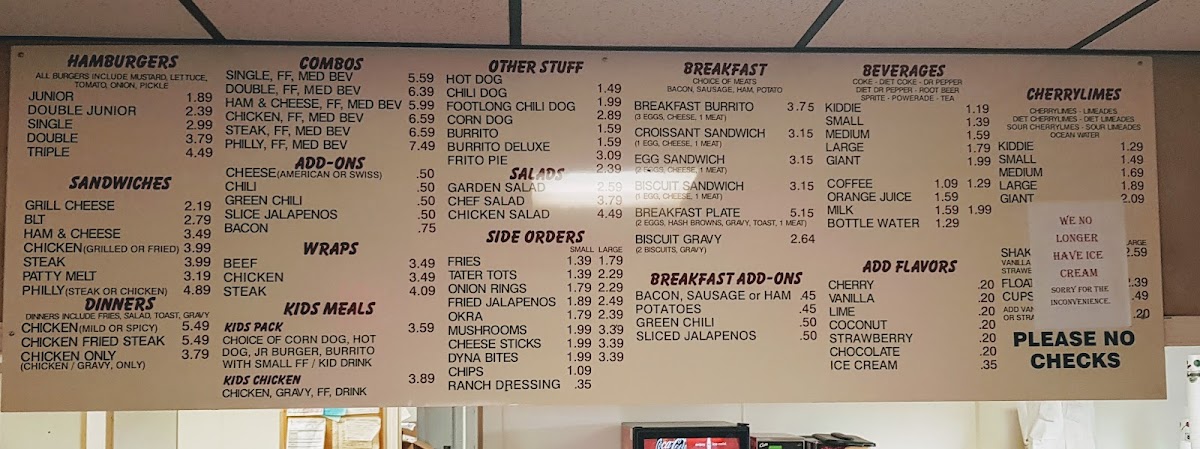 HAMBURGERS
ALL BURGERS INCLUDE MUSTARD, LETTUCE,
TOMATO, ONION, PICKLE
JUNIOR 1.89
DOUBLE JUNIOR 2.39
SINGLE 2.99
DOUBLE 3.79
TRIPLE 4.49
SANDWICHES
GRILL CHEESE 2.19
BLT 2.79
HAM & CHEESE 3.49
CHICKEN(GRILLED OR FRIED) 3.99
STEAK 3.99
PATTY MELT 3.19
PHILLY(STEAK OR CHICKEN) 4.89
DINNERS
DINNERS INCLUDE FRIES, SALAD, TOAST, GRAVY
CHICKEN(MILD OR SPICY) 5.49
CHICKEN FRIED STEAK 5.49
CHICKEN ONLY 3.79
(CHICKEN / GRAVY, ONLY)
COMBOS
SINGLE, FF, MED BEV 5.59
DOUBLE, FF, MED BEV 6.39
HAM & CHEESE, FF, MED BEV 5.99
CHICKEN, FF, MED BEV 6.59
STEAK, FF, MED BEV 6.59
PHILLY, FF, MED BEV 7.49
ADD-ONS
CHEESE(AMERICAN OR SWISS) .50
CHILI .50
GREEN CHILI .50
SLICE JALAPENOS .50
BACON .75
WRAPS
BEEF 3.49
CHICKEN 3.49
STEAK 4.09
KIDS MEALS
KIDS PACK 3.59
CHOICE OF CORN DOG, HOT
DOG, JR BURGER, BURRITO
WITH SMALL FF / KID DRINK
KIDS CHICKEN 3.89
CHICKEN, GRAVY, FF, DRINK
OTHER STUFF
HOT DOG 1.49
CHILI DOG 1.99
FOOTLONG CHILI DOG 2.89
CORN DOG 1.59
BURRITO 1.59
BURRITO DELUXE 3.09
FRITO PIE 2.39
SALADS
GARDEN SALAD 2.59
CHEF SALAD 3.79
CHICKEN SALAD 4.49
SIDE ORDERS
SMALL LARGE
FRIES 1.39 1.79
TATER TOTS 1.39 2.29
ONION RINGS 1.79 2.29
FRIED JALAPENOS 1.89 2.49
OKRA 1.79 2.39
MUSHROOMS 1.99 3.39
CHEESE STICKS 1.99 3.39
DYNA BITES 1.99 3.39
CHIPS 1.09
RANCH DRESSING .35
BREAKFAST
CHOICE OF MEATS
BACON, SAUSAGE, HAM, POTATO
BREAKFAST BURRITO 3.75
(3 EGGS, CHEESE, 1 MEAT)
CROISSANT SANDWICH 3.15
(1 EGG, CHEESE, 1 MEAT)
EGG SANDWICH 3.15
(2 EGGS, CHEESE, 1 MEAT)
BISCUIT SANDWICH 3.15
(1 EGG, CHEESE, 1 MEAT)
BREAKFAST PLATE 5.15
(2 EGGS, HASH BROWNS, GRAVY, TOAST, 1 MEAT)
BISCUIT GRAVY 2.64
(2 BISCUITS, GRAVY)
BREAKFAST ADD-ONS
BACON, SAUSAGE or HAM .45
POTATOES .45
GREEN CHILI .50
SLICED JALAPENOS .50
BEVERAGES
COKE - DIET COKE - DR PEPPER
DIET DR PEPPER - ROOT BEER
SPRITE - POWERADE - TEA
KIDDIE 1.19
SMALL 1.39
MEDIUM 1.59
LARGE 1.79
GIANT 1.99
COFFEE 1.09 1.29
ORANGE JUICE 1.59
MILK 1.59 1.99
BOTTLE WATER 1.29
ADD FLAVORS
CHERRY .20
VANILLA .20
LIME .20
COCONUT .20
STRAWBERRY .20
CHOCOLATE .20
ICE CREAM .35
CHERRYLIMES
CHERRYLIMES - LIMEADES
DIET CHERRYLIMES - DIET LIMEADES
SOUR CHERRYLIMES - SOUR LIMEADES
OCEAN WATER
KIDDIE 1.29
SMALL 1.49
MEDIUM 1.69
LARGE 1.89
GIANT 2.09
WE NO
LONGER
HAVE ICE
CREAM
SORRY FOR THE
INCONVENIENCE.
LARGE
SHAK 2.59
VANILLA
STRAWBE
FLOAT 2.39
CUPS .49
ADD VAN
OR STRA .20
PLEASE NO
CHECKS
Coca-Cola